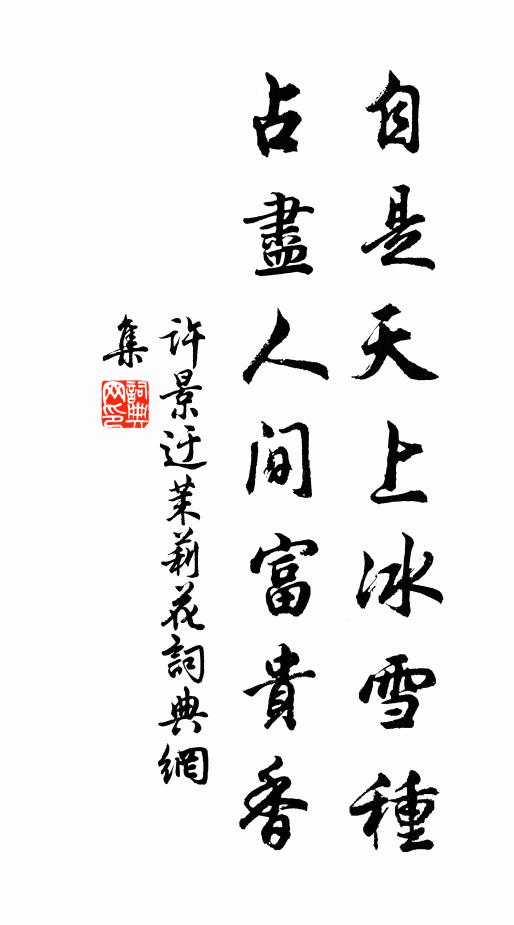 自是天上冰雪種
占盡人间富貴香
許景迂茉莉花詞典網
集
詞典
网印